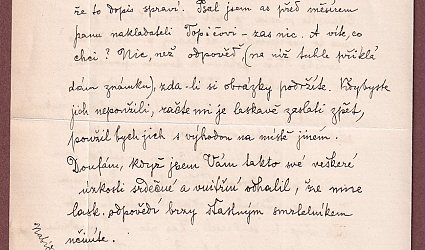 že to dopis spraví. Psal jsem as před měsícem
panu nakladateli Topičovi – zas nic. A víte, co
chci? Nic, než odpověď, (na niž tuhle příklá
dám známku), zda-li si obrázky podržíte. Kdybyste
jich nepoužili, račte mi je laskavě zaslati zpět,
použil bych jich s výhodou na místě jiném.
Doufám, když jsem Vám takto své veškeré
úzkosti srdečné a vnitřní odhalil, že mne
lask. odpovědí brzy šťastným smrtelníkem
učiníte.